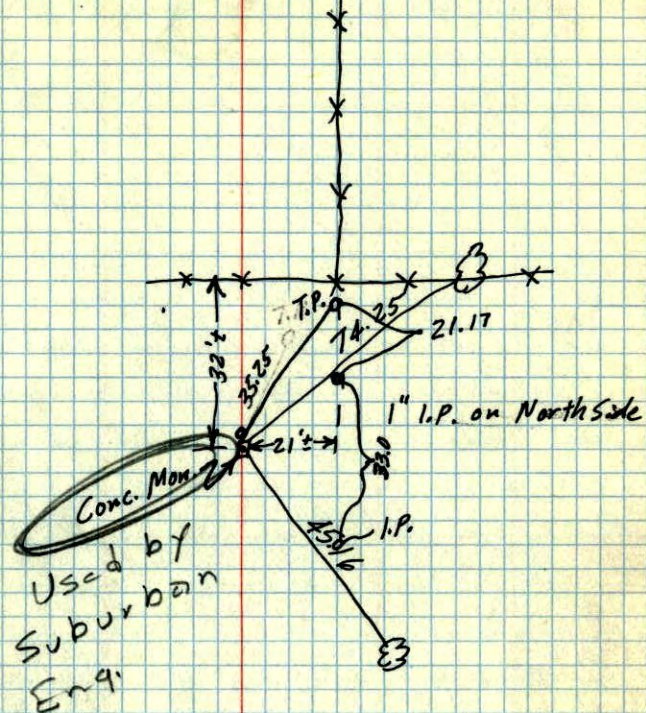 T.P.
74.25
21.17
32'±
35.25
1" I.P. on North Side
21'±
33.0
Conc. Mon.
I.P.
Used by
Suburban
Eng.